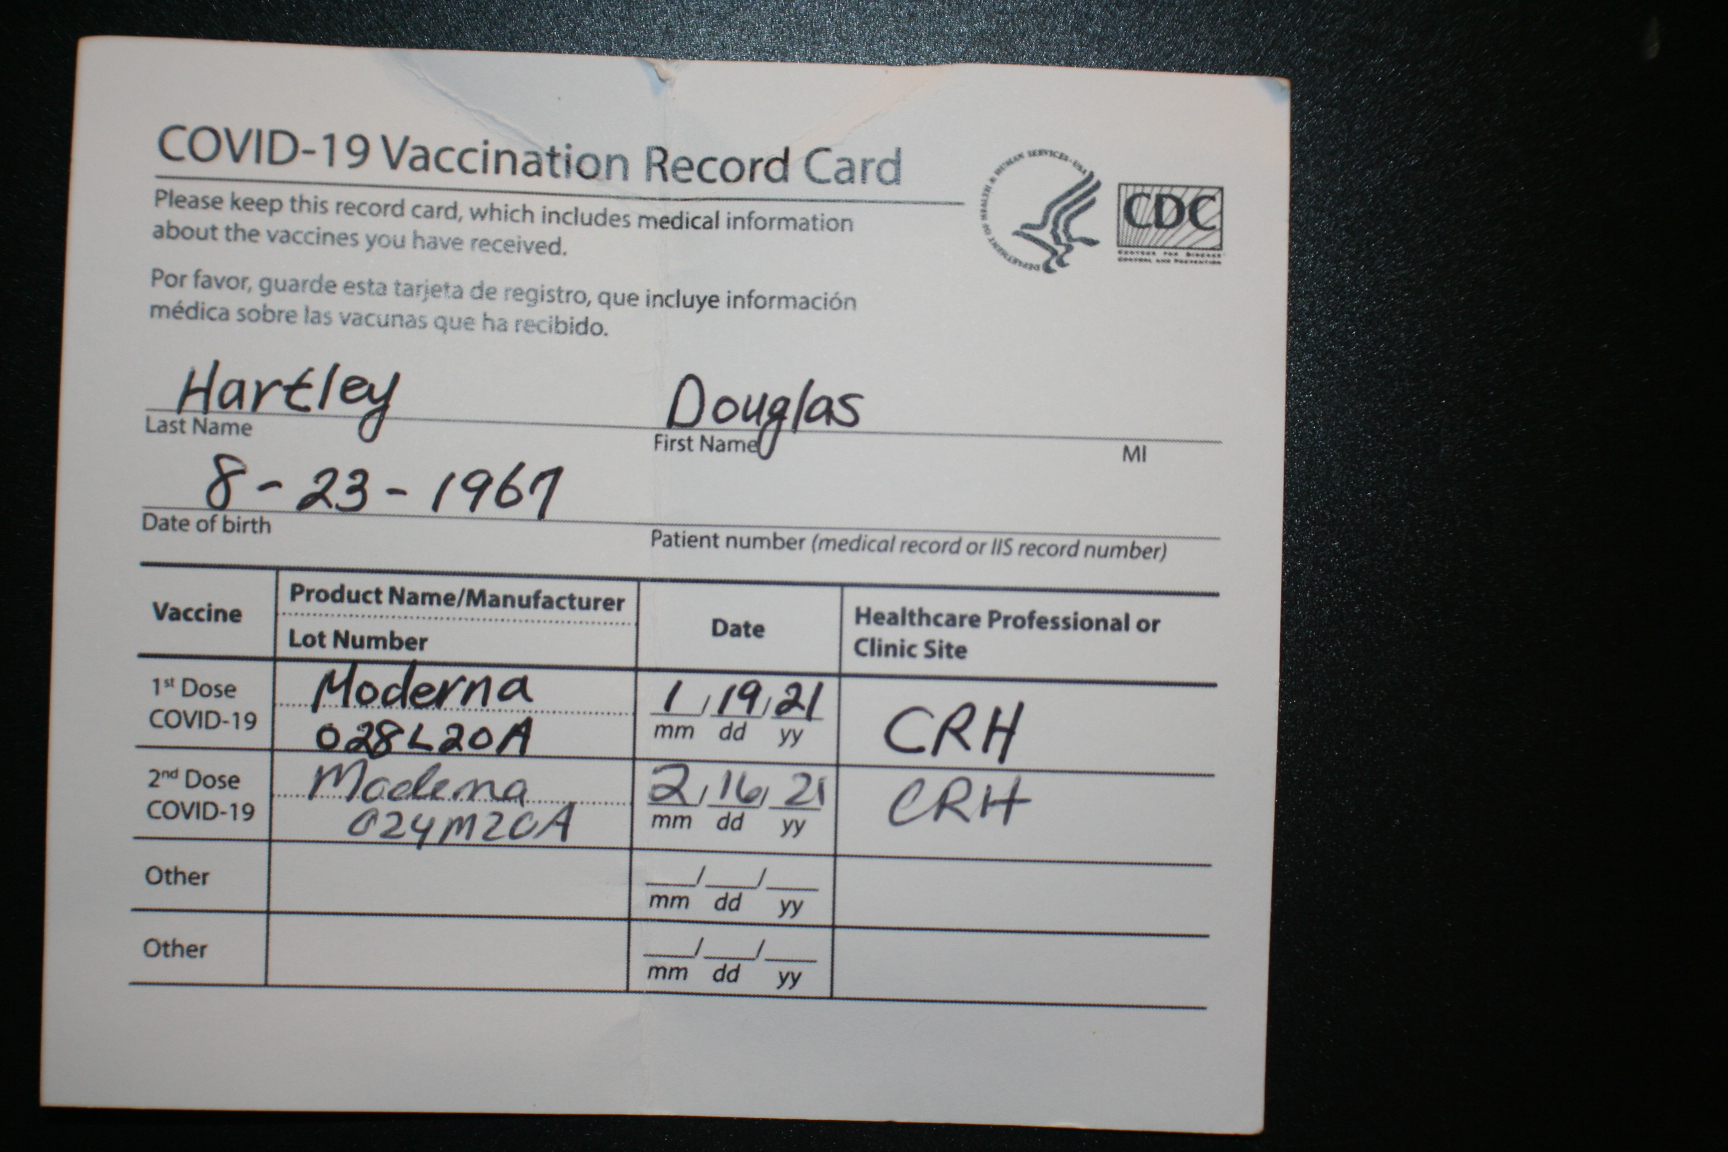 COVID-19 Vaccination Record Card
Please keep this record card, which includes medical information
about the vaccines you have received.
Por favor, guarde esta tarjeta de registro, que incluye información
médica sobre las vacunas que ha recibido.
DEPARTMENT OF HEALTH & HUMAN SERVICES · USA
CDC
CENTERS FOR DISEASE
CONTROL AND PREVENTION
Hartley Douglas
Last Name First Name MI
8-23-1967
Date of birth Patient number (medical record or IIS record number)
Vaccine Product Name/Manufacturer Date Healthcare Professional or
Lot Number Clinic Site
1st Dose Moderna 1/19/21 CRH
COVID-19 028L20A mm dd yy
2nd Dose Moderna 2/16/21 CRH
COVID-19 024M20A mm dd yy
Other __/__/__
mm dd yy
Other __/__/__
mm dd yy